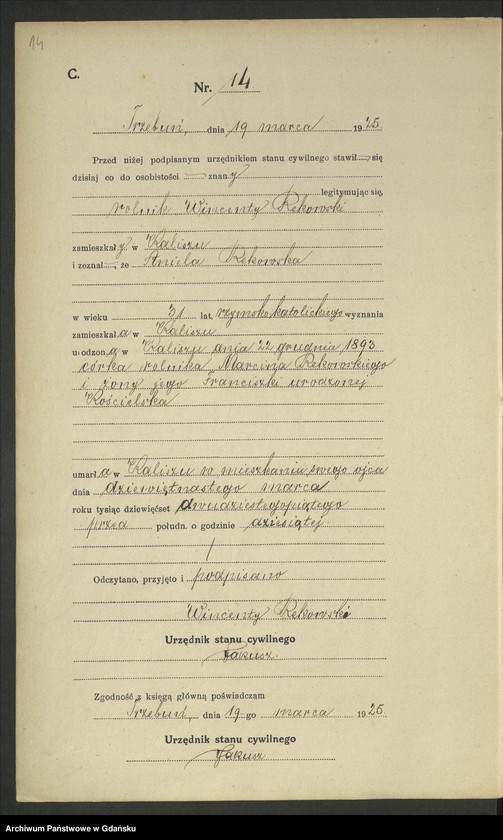 14
C.
Nr. 14.
Trzebuń, dnia 19 marca 1925.
Przed niżej podpisanym urzędnikiem stanu cywilnego stawił się
dzisiaj co do osobistości znany
legitymując się,
rolnik Wincenty Rekowski
zamieszkały w Kaliszu
i zeznał, że Aniela Rekowska
w wieku 31 lat, rzymsko katolickiego wyznania
zamieszkała w Kaliszu
urodzona w Kaliszu dnia 22 grudnia 1893
córka rolnika Marcina Rekowskiego
i żony jego Franciszki urodzonej
Kościelska
umarła w Kaliszu w mieszkaniu swego ojca
dnia dziewiętnastego marca
roku tysiąc dziewięćset dwudziestegopiątego
przed połudn. o godzinie dziesiątej
Odczytano, przyjęto i podpisano
Wincenty Rekowski
Urzędnik stanu cywilnego
Jakusz.
Zgodność z księgą główną poświadczam
Trzebuń, dnia 19-go marca 1925.
Urzędnik stanu cywilnego
Jakusz
Archiwum Państwowe w Gdańsku